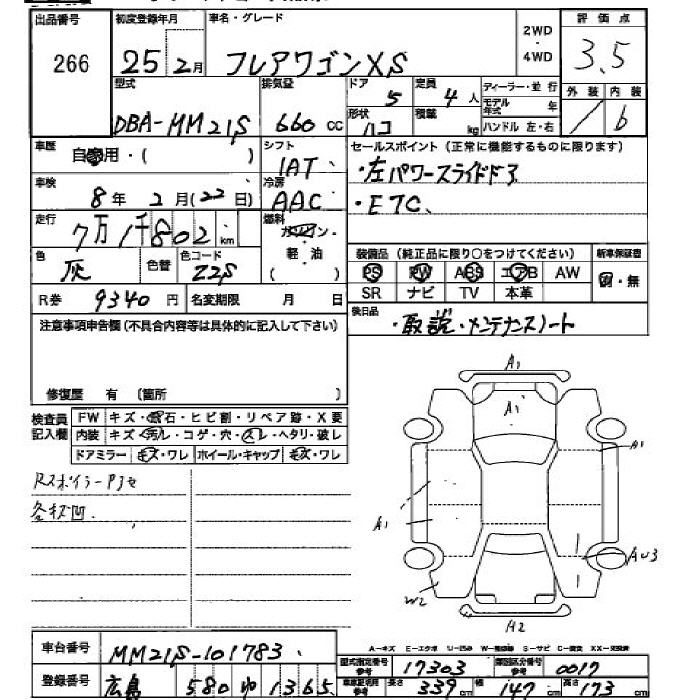 出品番号 初度登録年月 車名・グレード 2WD・4WD 評価点
266 25 2月 フレアワゴンXS 3.5
型式 排気量 ドア 定員 ディーラー・並行 外装 内装
DBA-MM21S 660 cc 5 4人 モデル年式 年 / b
形状 ハコ 積載 kg ハンドル 左・右
車歴 自家用・( ) シフト 1AT セールスポイント(正常に機能するものに限ります)
車検 8年 2月(22日) 冷房 AAC ・左パワースライドドア
走行 7万1千802km 燃料 ガソリン・軽油( ) ・ETC、
色 灰 色替 色コード Z2S 装備品(純正品に限り○をつけてください) 新車保証書
PS PW ABS エアB AW 有・無
R巻 9340円 名変期限 月 日 SR ナビ TV 本革
注意事項申告欄(不具合内容等は具体的に記入して下さい) 後日品
・取説・メンテナンスノート
修復歴 有 (箇所 )
検査員記入欄 FW キズ・飛石・ヒビ割・リペア跡・X要
内装 キズ・汚レ・コゲ・穴・スレ・ヘタリ・破レ
ドアミラー キズ・ワレ ホイール・キャップ キズ・ワレ
各キズ凹
A1
A1
A1
A1
AU3
W2
A2
車台番号 MM21S-101783
A-キズ E-エクボ U-凹み W-補修跡 S-サビ C-腐食 XX-交換済
型式指定番号 参考 17303 類別区分番号 参考 0017
登録番号 広島 580 ゆ 1365 車庫証明用 参考 長さ 339cm 幅 147cm 高さ 173cm